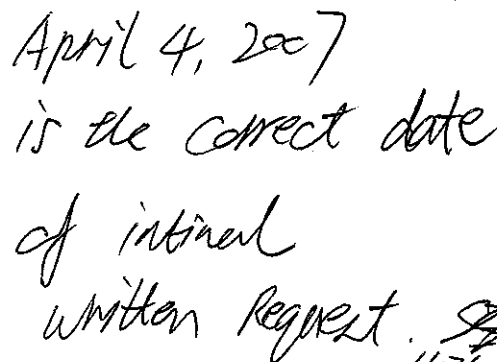 April 4, 2007
is the correct date
of intineral
written Request.